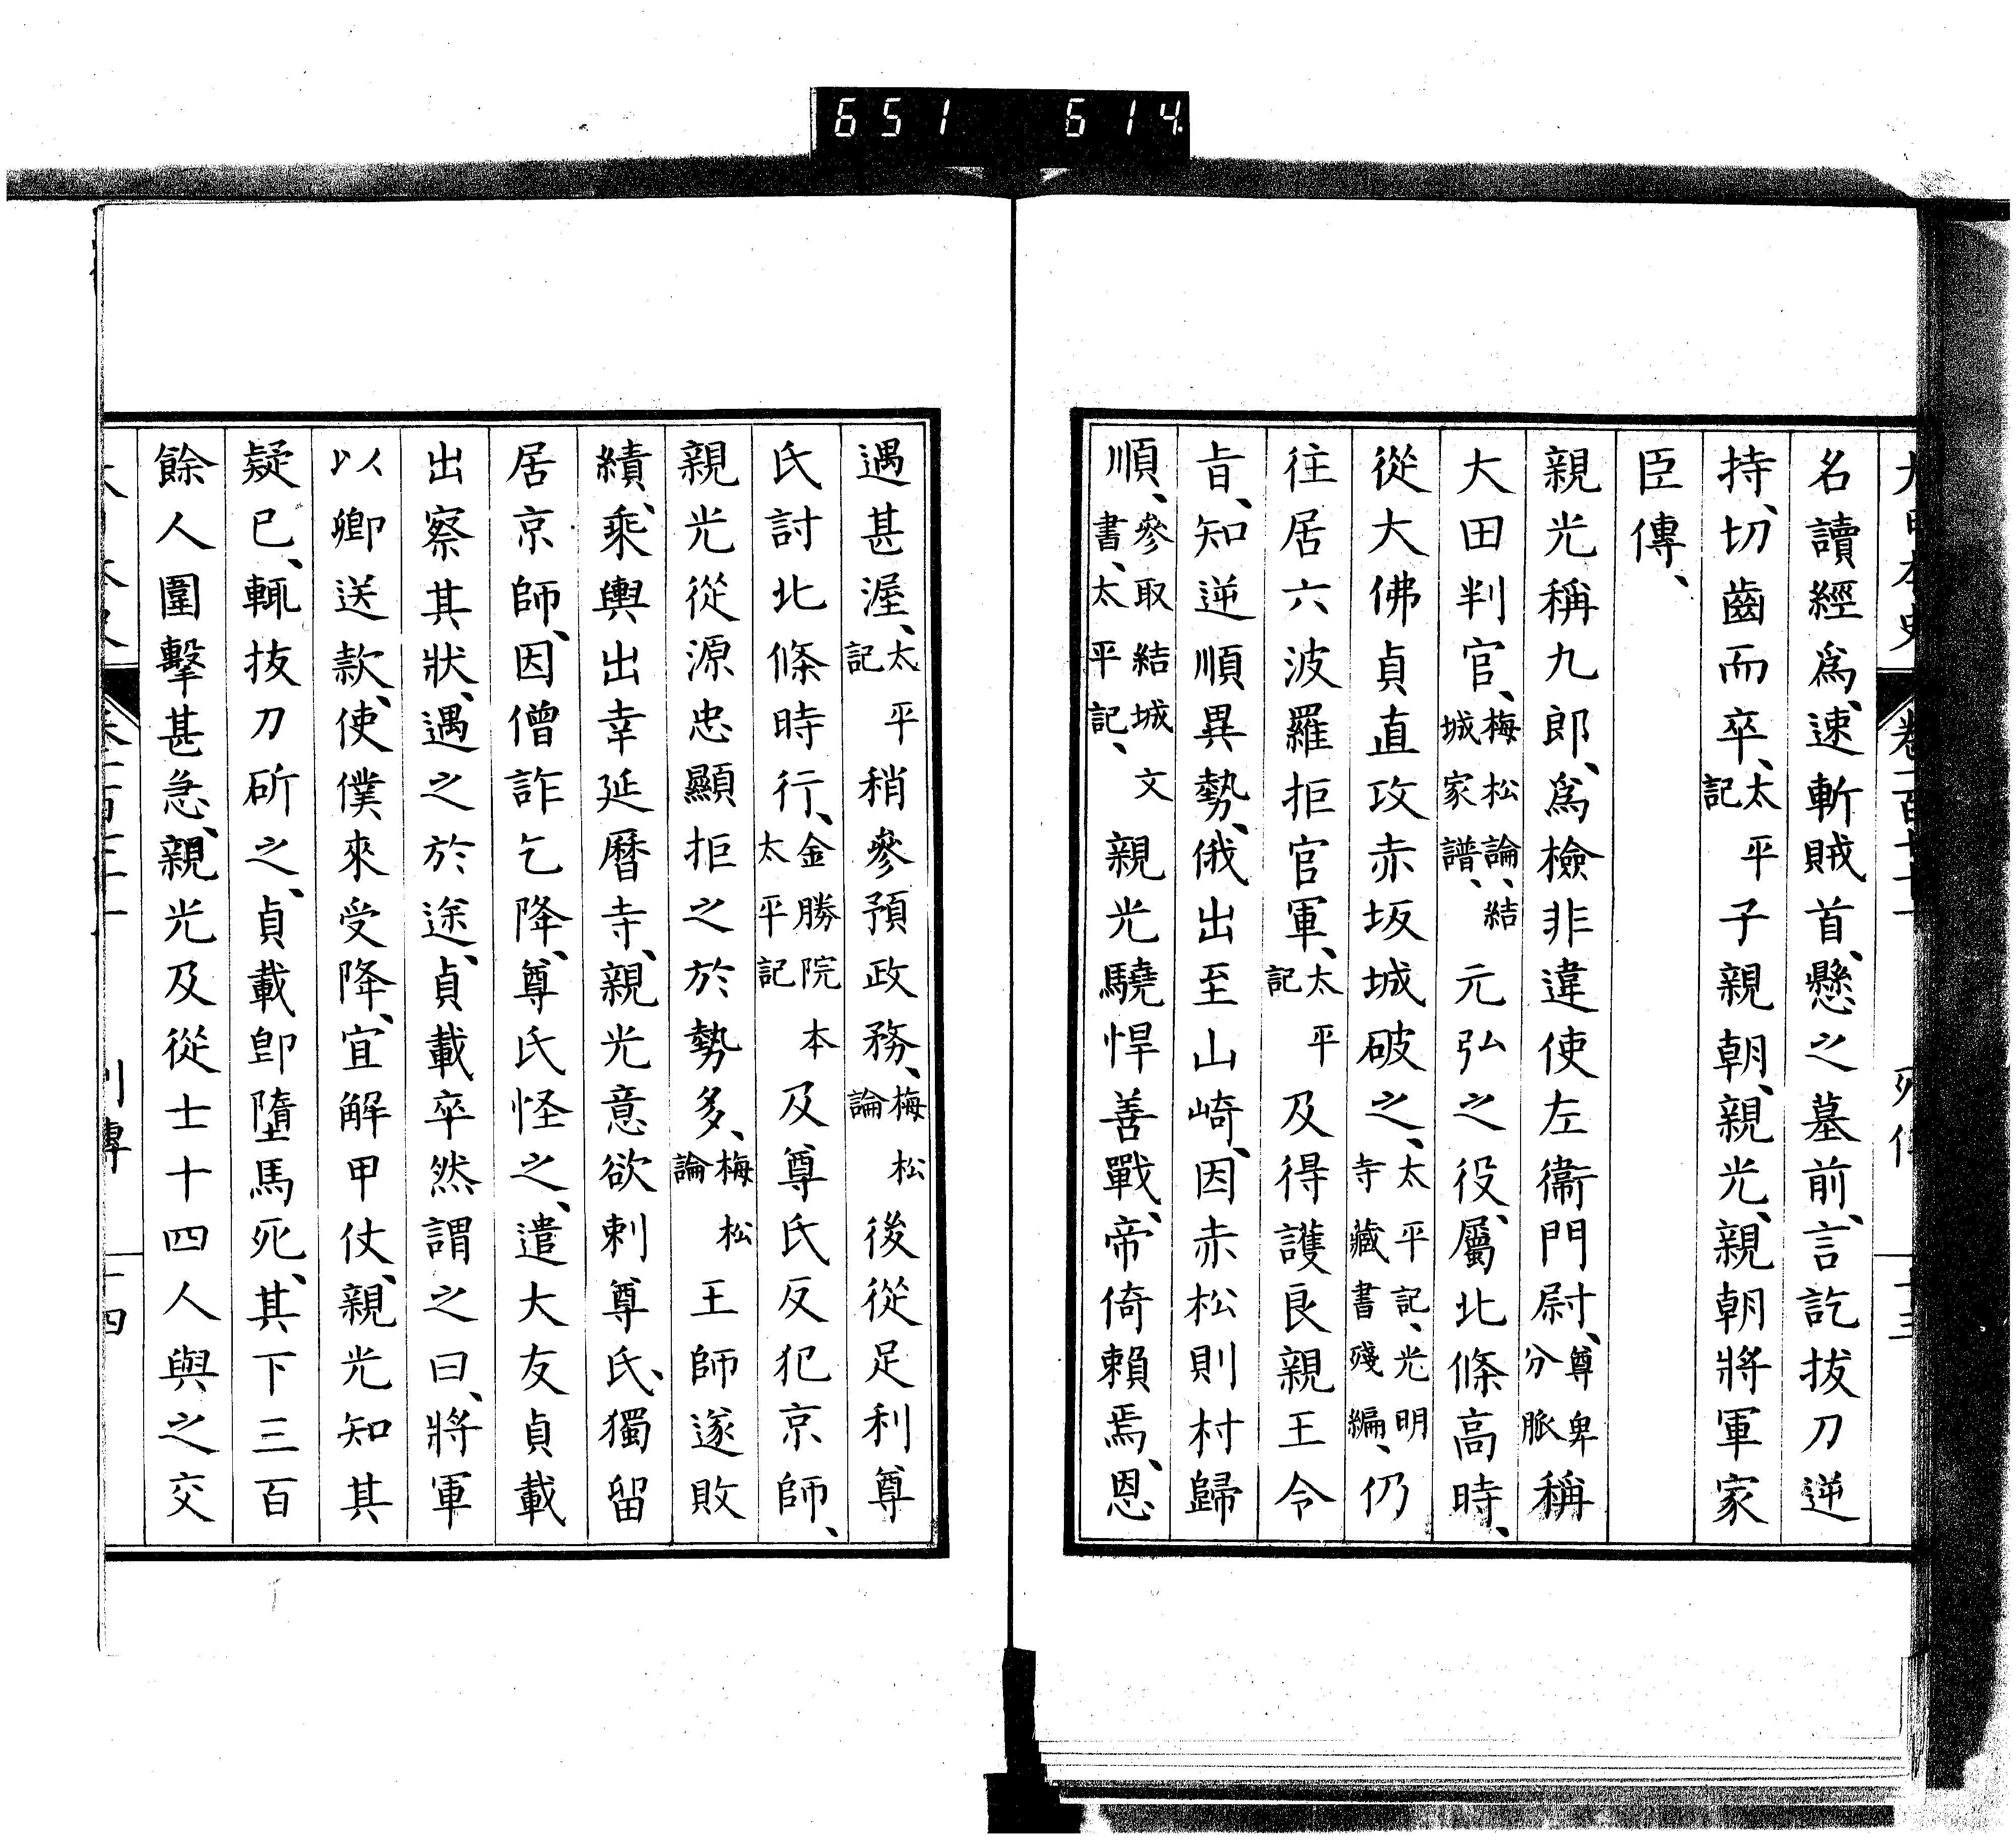 651 614
名讀經爲、速斬賊首、懸之墓前、言訖拔刀逆
持、切齒而卒、太平記子親朝、親光、親朝將軍家
臣傳、
親光稱九郎、爲檢非違使左衞門尉、尊卑分脈稱
大田判官、梅松論、結城家譜、元弘之役、屬北條高時、
從大佛貞直攻赤坂城破之、太平記、光明寺藏書殘編、仍
往居六波羅拒官軍、太平記及得護良親王令
旨、知逆順異勢、俄出至山崎、因赤松則村歸
順、參取結城文書、太平記、親光驍悍善戰、帝倚賴焉、恩
遇甚渥、太平記稍參預政務、梅松論後從足利尊
氏討北條時行、金勝院本太平記及尊氏反犯京師、
親光從源忠顯拒之於勢多、梅松論王師遂敗
績、乘輿出幸延曆寺、親光意欲刺尊氏、獨留
居京師、因僧詐乞降、尊氏怪之、遣大友貞載
出察其狀、遇之於途、貞載卒然謂之曰、將軍
以卿送款、使僕來受降、宜解甲仗、親光知其
疑已、輒拔刀斫之、貞載卽墮馬死、其下三百
餘人圍擊甚急、親光及從士十四人與之交